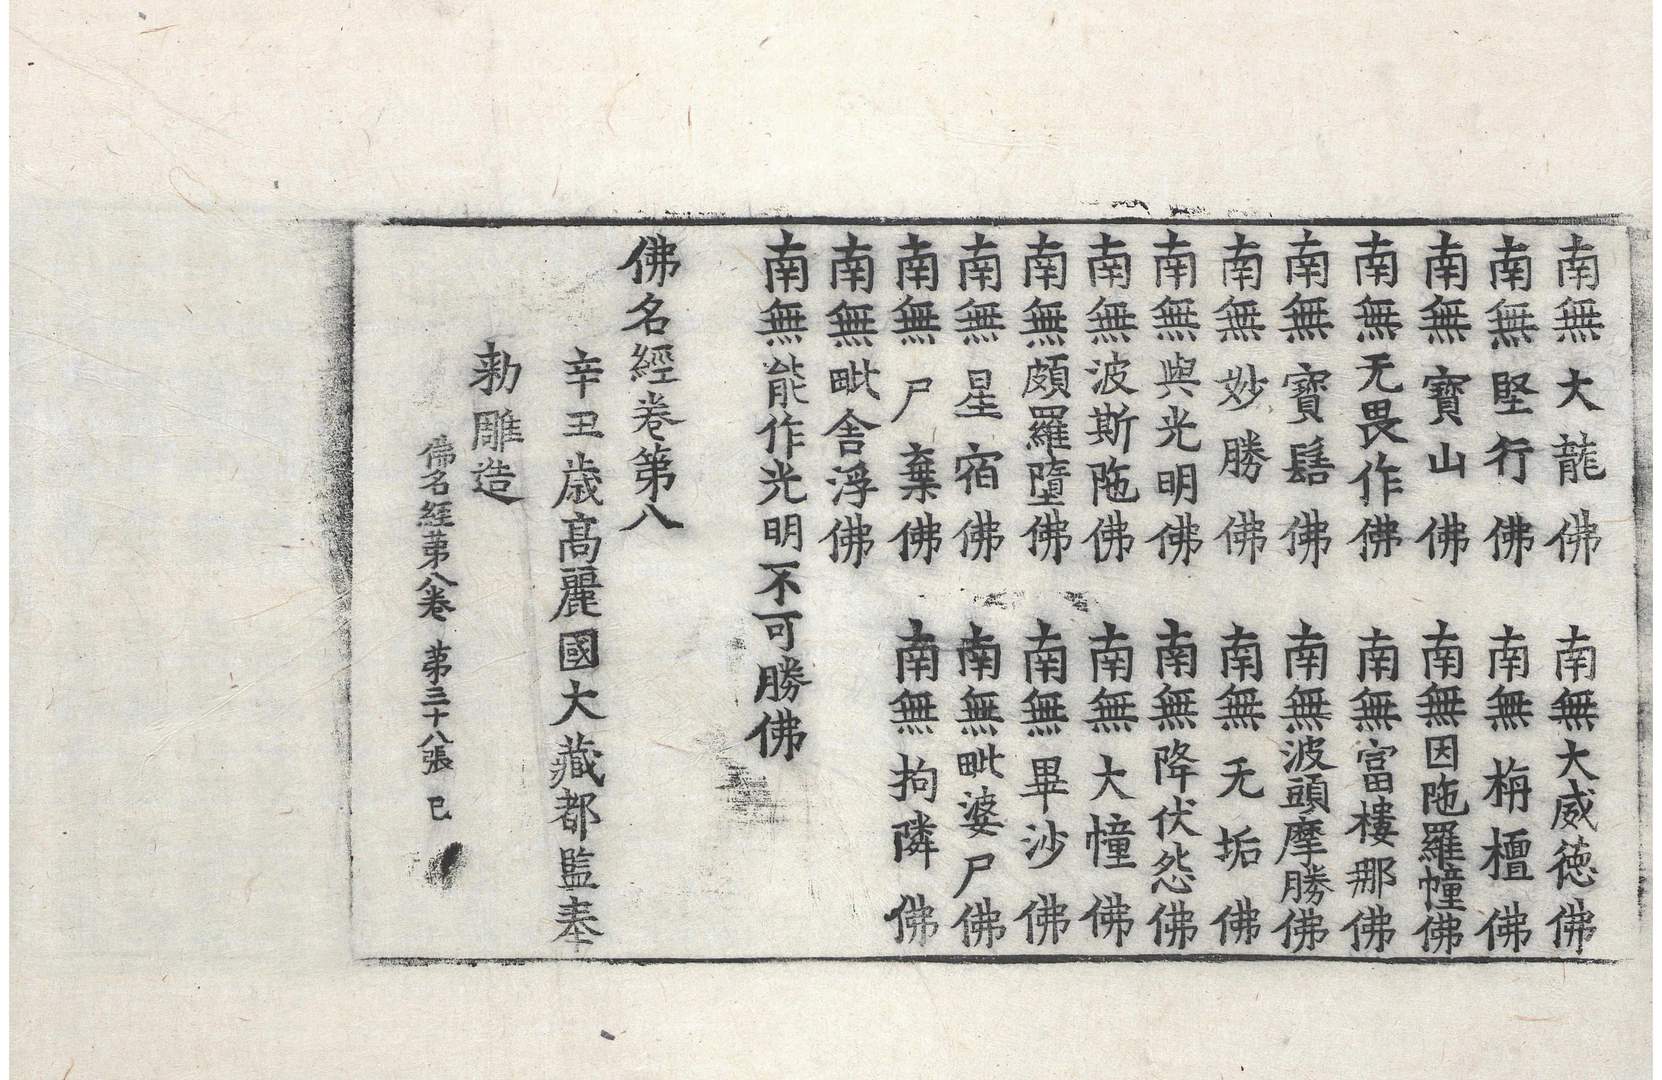 南無大龍佛 南無大威德佛
南無堅行佛 南無栴檀佛
南無寶山佛 南無因陁羅幢佛
南無无畏作佛 南無富樓那佛
南無寶髻佛 南無波頭摩勝佛
南無妙勝佛 南無无垢佛
南無與光明佛 南無降伏怨佛
南無波斯陁佛 南無大幢佛
南無頗羅墮佛 南無畢沙佛
南無星宿佛 南無毗婆尸佛
南無尸棄佛 南無拘隣佛
南無毗舍浮佛
南無能作光明不可勝佛
佛名經卷第八
辛丑歲高麗國大藏都監奉
勑雕造
佛名經第八卷 第三十八張 已